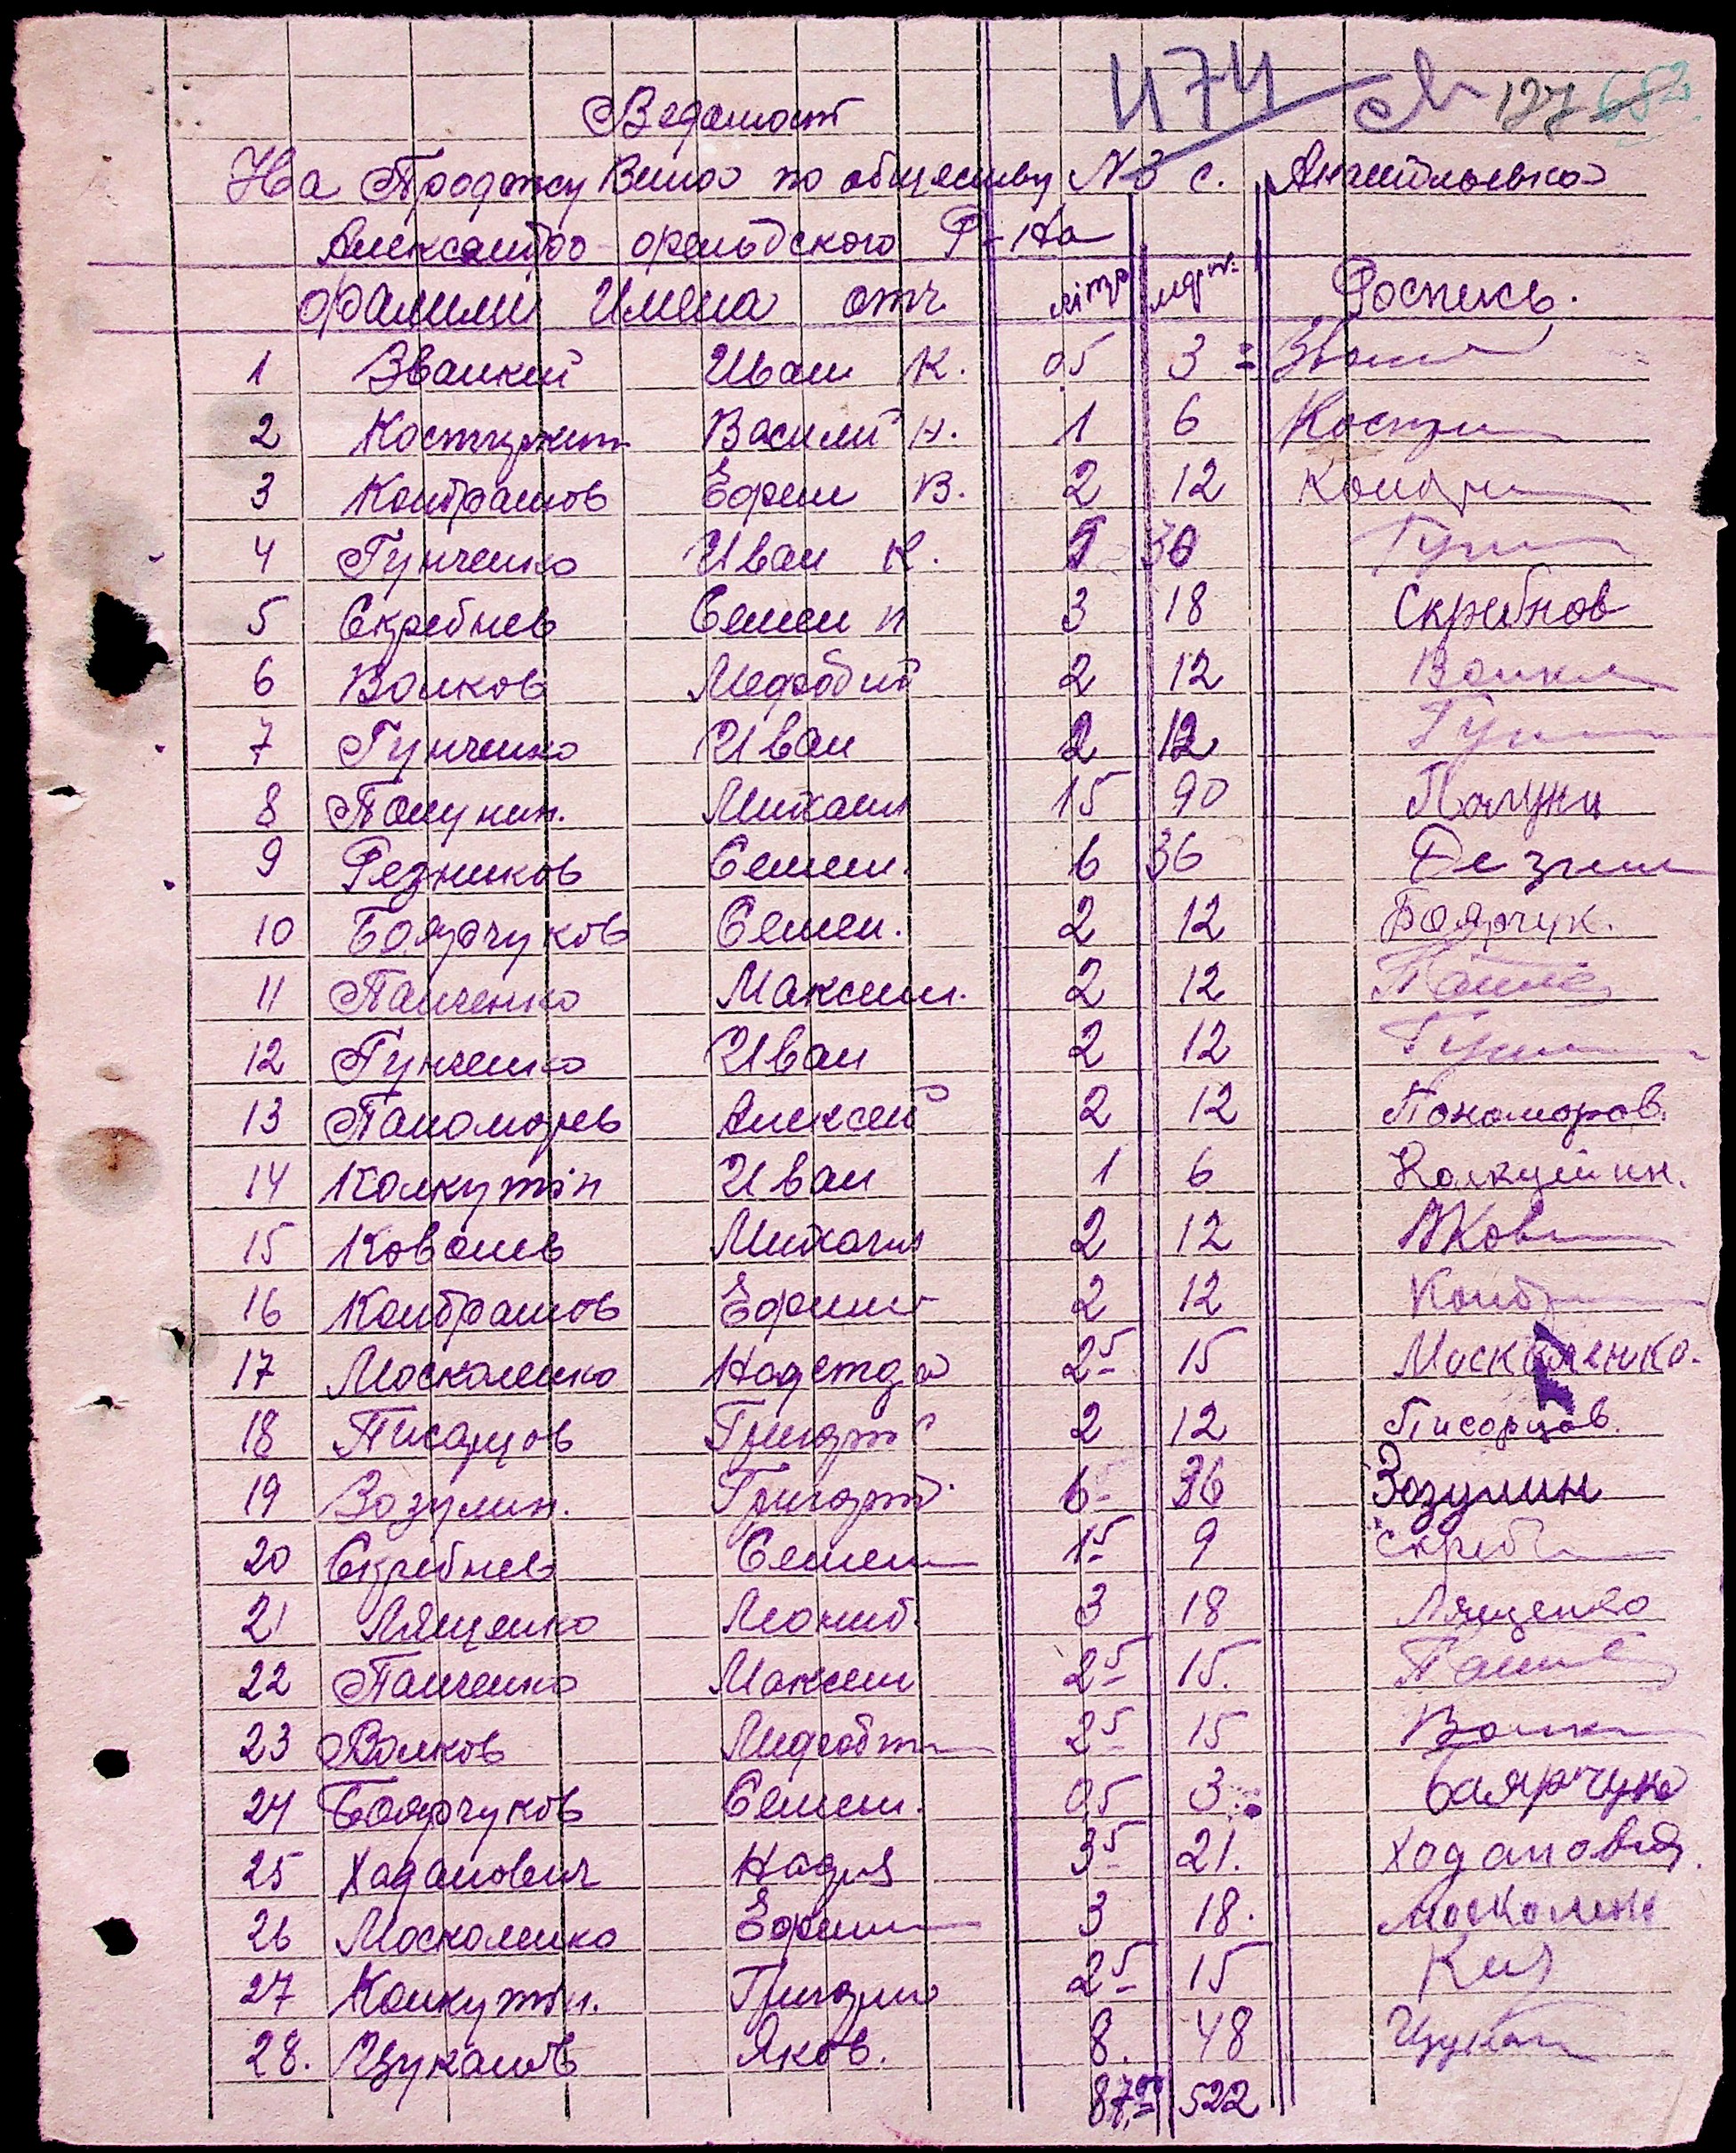 474 № 127 652
Ведамост
На Проджу Вина по обществу N 3 с. Ангейловка
Александро-орельдского Р-на
Фамилии Имена отч літр мдрк. Роспись.
1 Званкий Иван К. 05 3 =
2 Костукит Василий Н. 1 6
3 Кондрашов Ефрем В. 2 12
4 Гунченко Иван К. 5 30
5 Скребнев Семен И 3 18 Скребнов
6 Волков Медфодий 2 12
7 Гунченко Иван 2 12
8 Полунин. Михаил 15 90 Полуни
9 Резников Семен. 6 36
10 Боярчуков Семен. 2 12 Боярчук.
11 Панченко Максим. 2 12
12 Гунченко Иван 2 12
13 Паномарев Алексей 2 12 Пономоров.
14 Колкутін Иван 1 6 Колкутин.
15 Ковалев Михаил 2 12
16 Кондрашов Ефрим 2 12
17 Москаленко Надежда 25 15 Москаленко.
18 Писарцов Григорій 2 12 Писорцов.
19 Возулин. Григорій 6- 36 Зозулин
20 Скребнев Семен 15 9 Скреб
21 Лященко Леонид. 3 18 Лященко
22 Панченко Максим 25 15.
23 Волков Медфодий 25 15
24 Боярчуков Семен. 05 3 Баярчук
25 Хаданович Надия 35 21. Ходанович.
26 Москаленко Ефрим 3 18. Москаленк
27 Колкутін. Григорий 25 15
28. Цукалов Яков. 8. 48
87,00 522